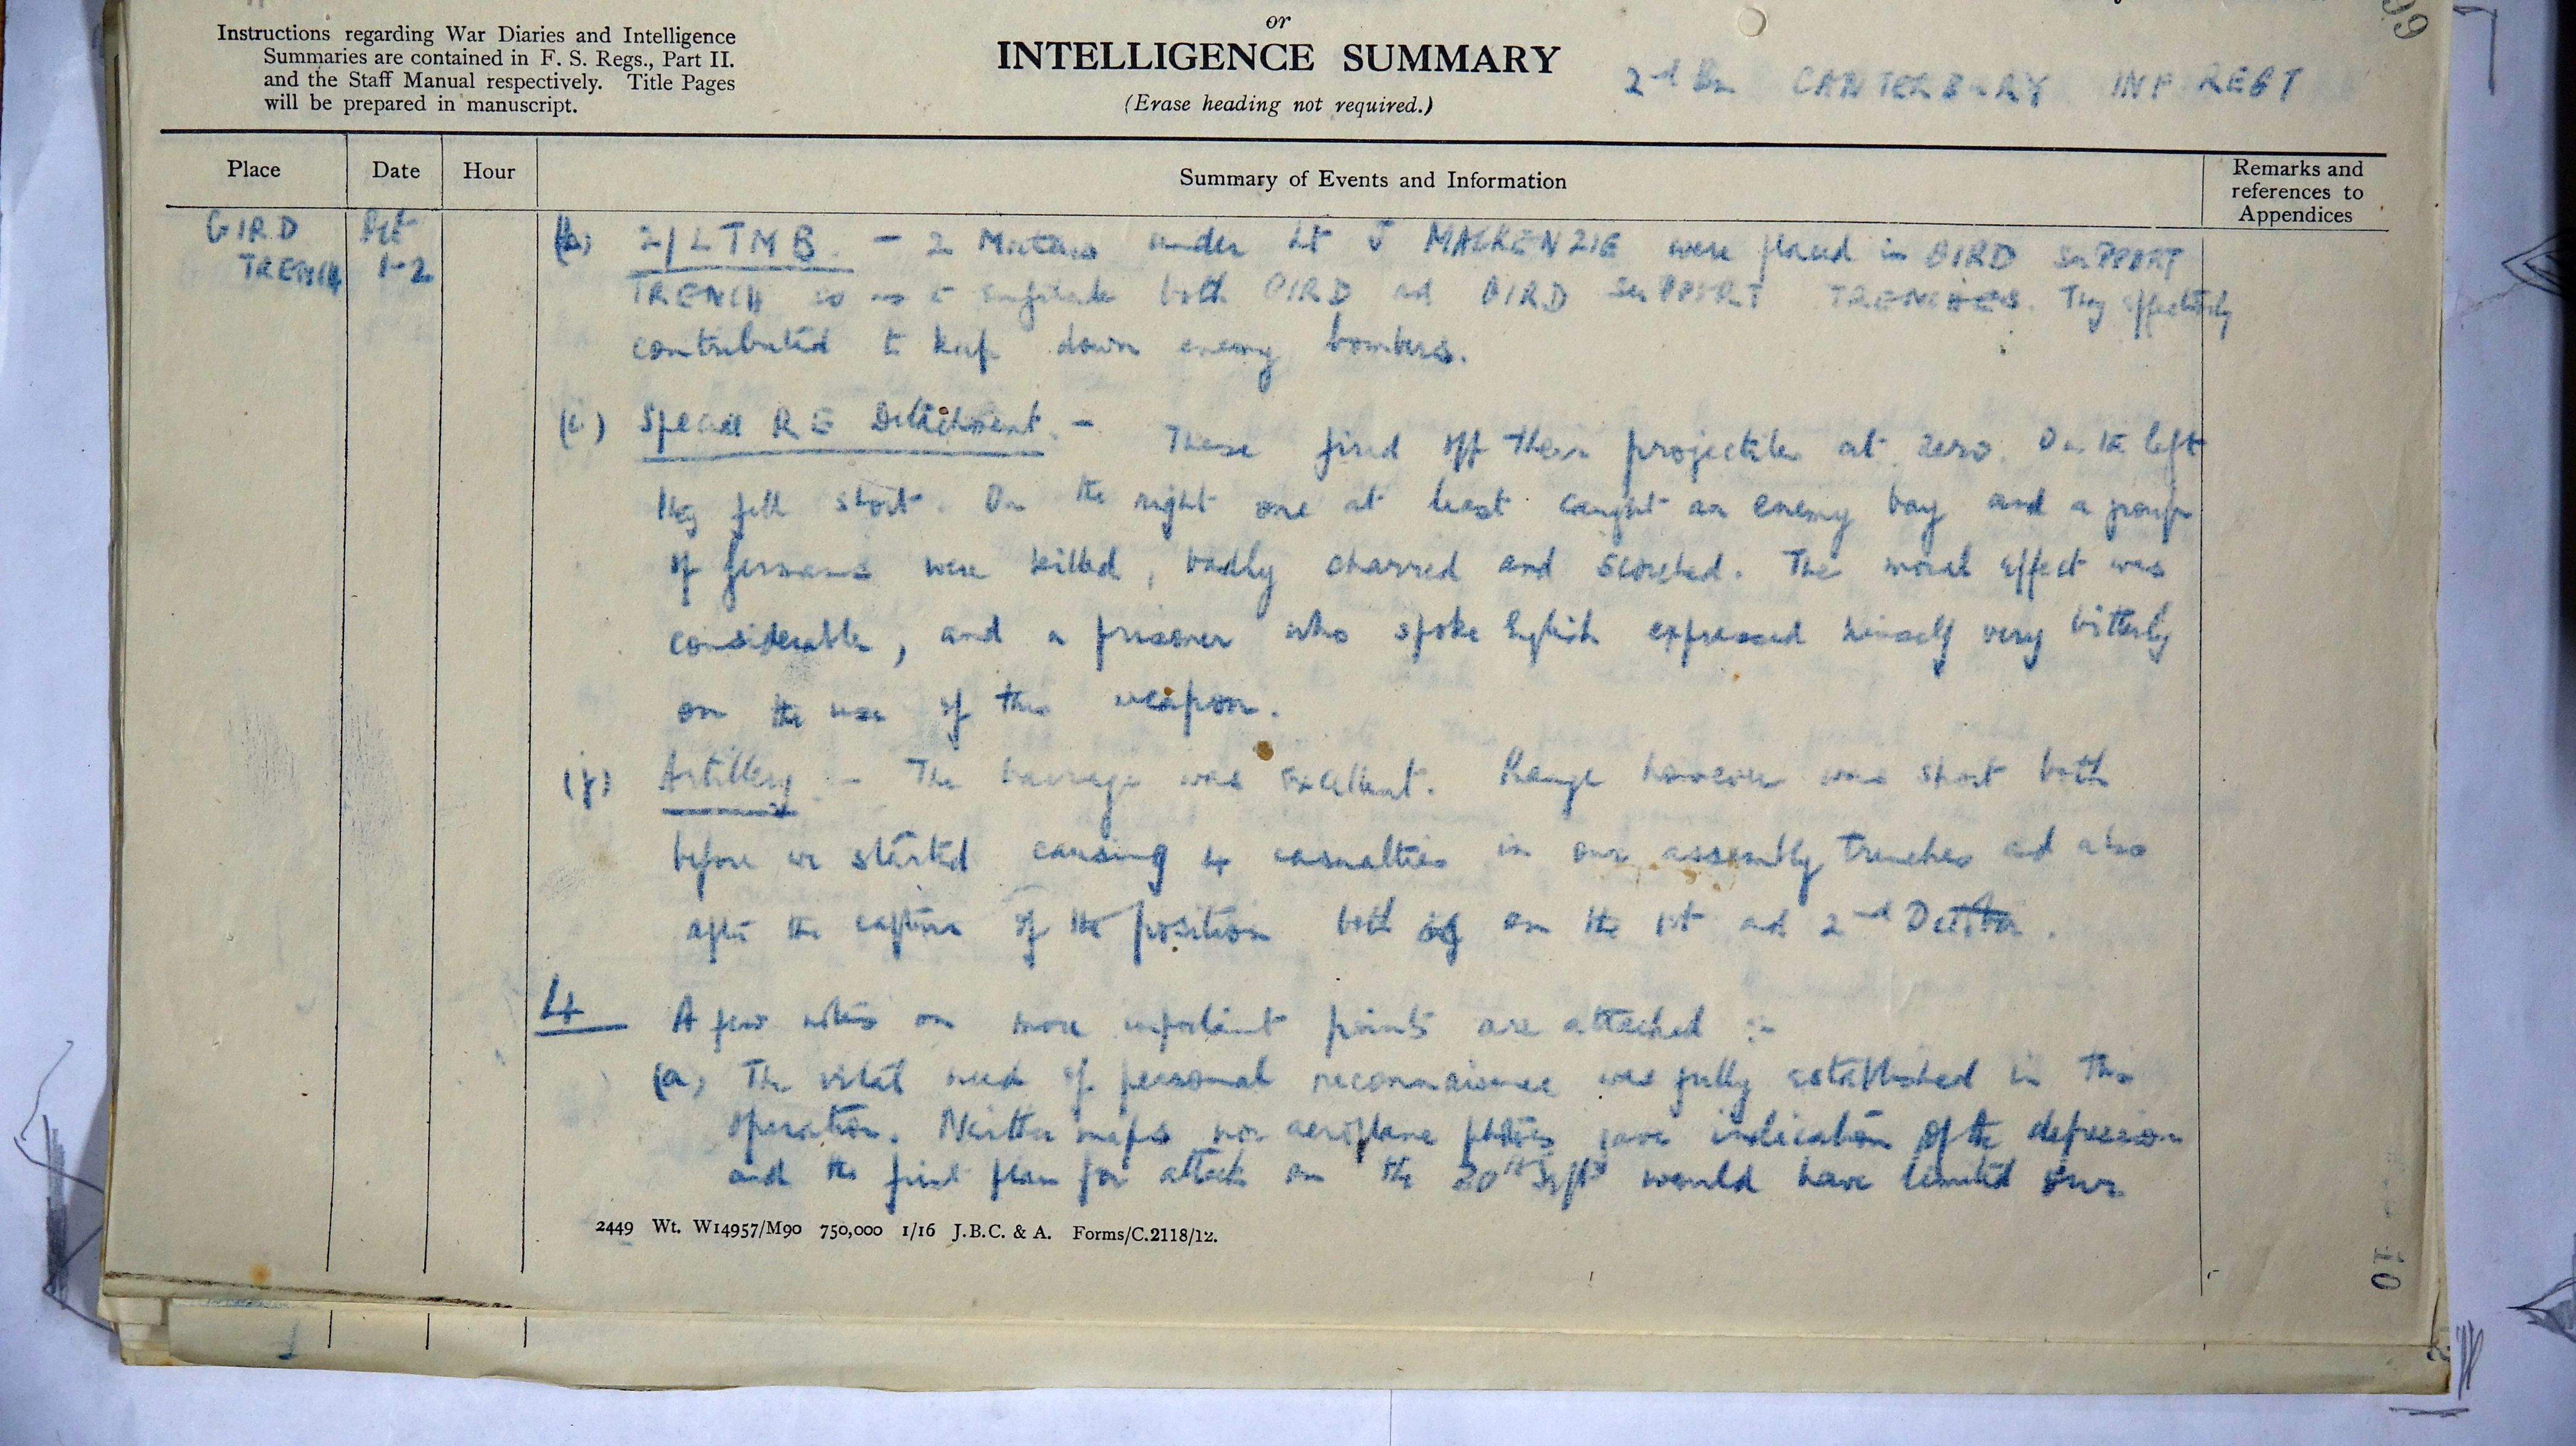 or
Instructions regarding War Diaries and Intelligence
Summaries are contained in F. S. Regs., Part II.
and the Staff Manual respectively. Title Pages
will be prepared in manuscript.
INTELLIGENCE SUMMARY
(Erase heading not required.)
2nd Bn CANTERBURY INF REGT
Place Date Hour Summary of Events and Information Remarks and
references to
Appendices
GIRD
TRENCH
Oct
1-2
2/LTMB. - 2 Mortars under Lt J MACKENZIE were placed in GIRD SUPPORT
TRENCH so as to enfilade both GIRD and GIRD SUPPORT TRENCHES. They effectively
contributed to keep down enemy bombers.
Special RE Detachment. - These fired off their projectiles at zero. On the left
they fell short. On the right one at least caught an enemy bay and a group
of germans were killed, badly charred and scorched. The moral effect was
considerable, and a prisoner who spoke English expressed himself very bitterly
on the use of this weapon.
Artillery - The barrage was excellent. Range however was short both
before we started causing 4 casualties in our assembly trenches and also
after the capture of the position both on the 1st and 2nd
4 A few notes on more important points are attached :-
(a) The vital need of personal reconnaissance was fully established in this
operation. Neither maps nor aeroplane photos gave indication of the depression
and the first plan for attack on the 30th Sept would have limited our
2449 Wt. W14957/M90 750,000 1/16 J.B.C. & A. Forms/C.2118/12.
10